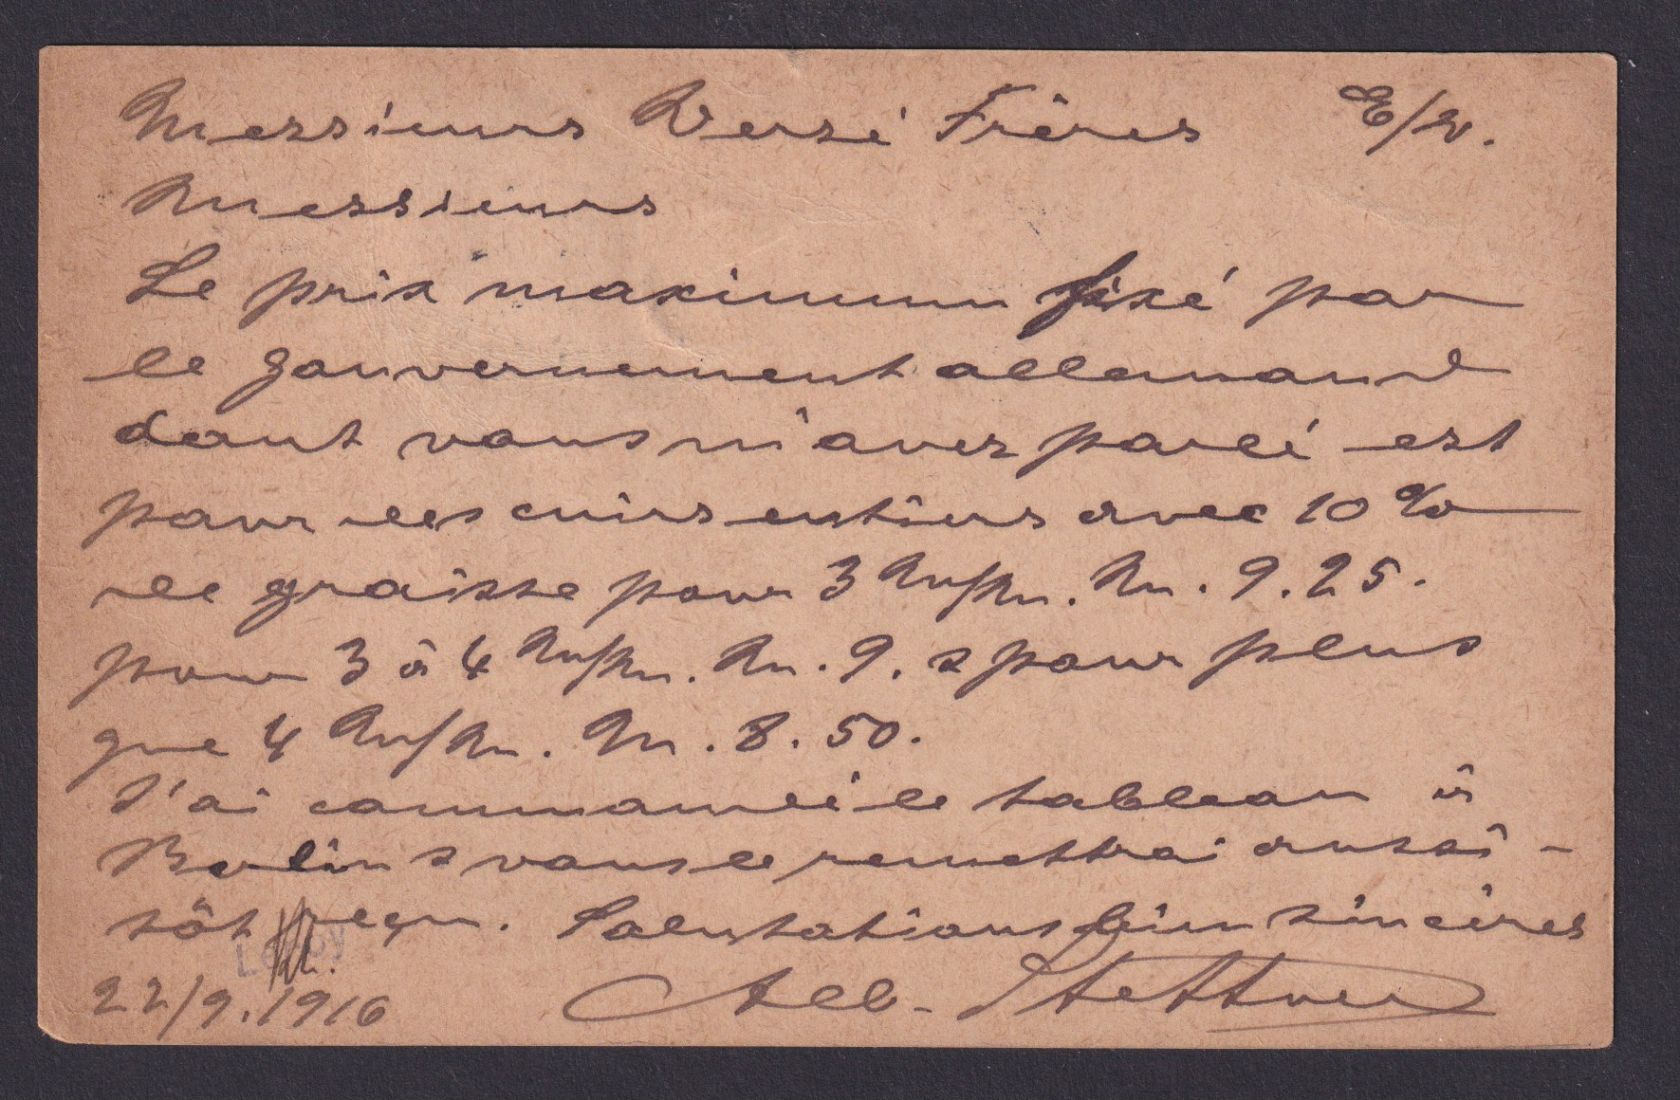 Messieurs Versé Frères E/V.
Messieurs
Le prix maximum fixé par
le gouvernement allemand
dont vous m'avez parlé est
pour les cuirs entiers avec 10 %
de graisse pour 3 m/m. M. 9.25.
pour 3 à 4 m/m. M. 9. & pour plus
que 4 m/m. M. 8.50.
J'ai commandé le tableau à
Berlin & vous le remettrai aussi-
tôt reçu. Salutations bien sincères
22/9.1916 Alb. Stettner